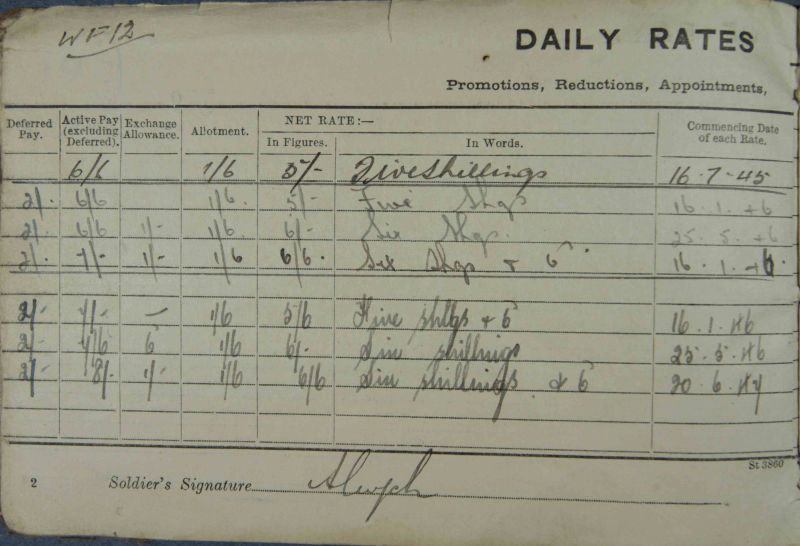 WF12
DAILY RATES
Promotions, Reductions, Appointments,
Deferred Pay. Active Pay (excluding Deferred). Exchange Allowance. Allotment. NET RATE:— In Figures. In Words. Commencing Date of each Rate.
6/6 1/6 5/- Five Shillings 16·7·45
2/- 6/6 1/6 5/- Five Shgs 16·1·46
2/- 6/6 1/- 1/6 6/- Six Shgs. 25·5·46
2/- 7/- 1/- 1/6 6/6 Six Shgs & 6 16·1·46
2/- 7/- — 1/6 5/6 Five shlgs & 6 16·1·46
2/- 7/6 6 1/6 6/- Six shillings 25·5·46
2/- 8/- 1/- 1/6 6/6 Six shillings & 6 20·6·47
St 3860
2 Soldier's Signature